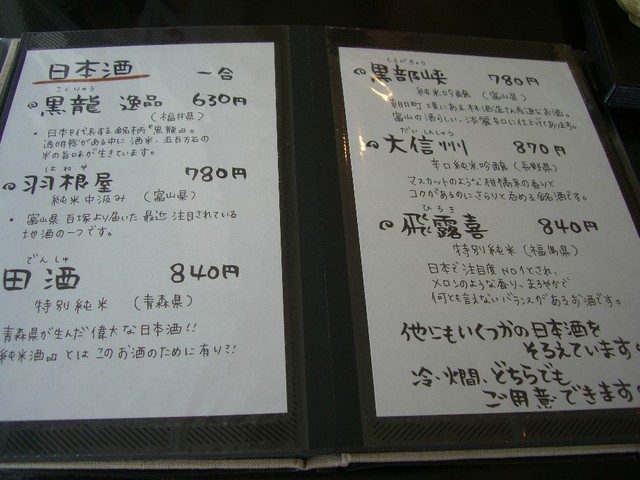 日本酒 一合
こくりゅう
黒龍 逸品 630円
(福井県)
・日本を代表する銘柄『黒龍』。
透明感がある中に酒米、五百万石の
米の旨味が生きています。
はねや
羽根屋 780円
純米中汲み (富山県)
・富山県百塚より届いた最近注目されている
地酒の一つです。
でんしゅ
田酒 840円
特別純米 (青森県)
青森県が生んだ偉大な日本酒!!
純米酒』とはこのお酒のために有り?!
くろべきょう
黒部峡 780円
純米吟醸 (富山県)
朝日町・境にある林酒造さん表造なお酒。
富山の酒らしい、淡麗辛口に仕上げてあります。
だいしんしゅう
大信州 870円
辛口純米吟醸 (長野県)
マスカットのような柑橘系の香りと
コクがあるのにさらりと呑める銘酒です。
ひろき
飛露喜 840円
特別純米 (福島県)
日本で注目度NO1とされ、
メロンのような香り、まろやかで
何とも言えないバランスがあるお酒です。
他にもいくつかの日本酒を
そろえています
冷・燗、どちらでも
ご用意できます